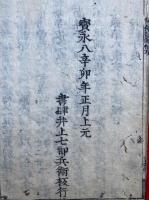 寳永八辛卯年正月上元
書肆井上七郎兵衛板行